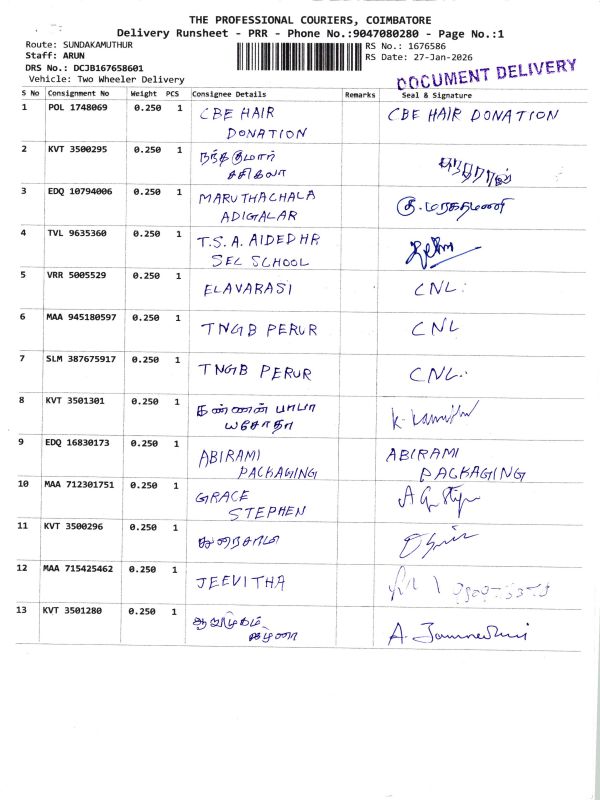 THE PROFESSIONAL COURIERS, COIMBATORE
Delivery Runsheet - PRR - Phone No.:9047080280 - Page No.:1
Route: SUNDAKAMUTHUR RS No.: 1676586
Staff: ARUN RS Date: 27-Jan-2026
DRS No.: DCJB167658601
DOCUMENT DELIVERY
Vehicle: Two Wheeler Delivery
S No Consignment No Weight PCS Consignee Details Remarks Seal & Signature
1 POL 1748069 0.250 1 CBE HAIR CBE HAIR DONATION
DONATION
2 KVT 3500295 0.250 1 நந்தகுமார்
சசிகலா
3 EDQ 10794006 0.250 1 MARUTHACHALA
ADIGALAR
4 TVL 9635360 0.250 1 T.S.A. AIDED HR
SEC SCHOOL
5 VRR 5005529 0.250 1 ELAVARASI CNL
6 MAA 945180597 0.250 1 TNGB PERUR CNL
7 SLM 387675917 0.250 1 TNGB PERUR CNL
8 KVT 3501301 0.250 1 கண்ணன் பாபா
யசோதா
9 EDQ 16830173 0.250 1 ABIRAMI ABIRAMI
PACKAGING PACKAGING
10 MAA 712301751 0.250 1 GRACE
STEPHEN
11 KVT 3500296 0.250 1 துரைசாமி
12 MAA 715425462 0.250 1 JEEVITHA
13 KVT 3501280 0.250 1